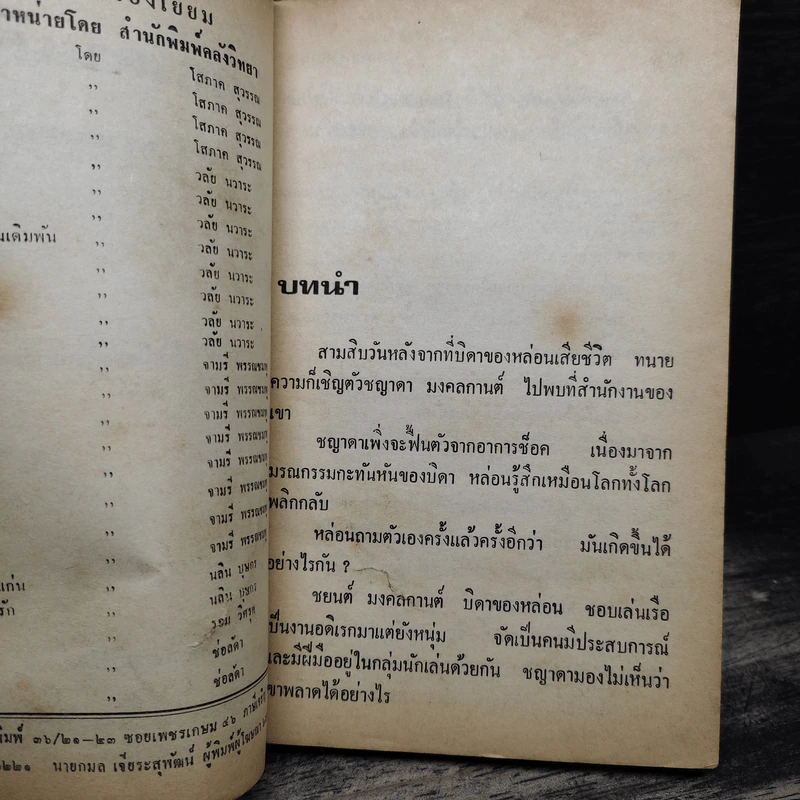 องเยี่ยม
าหน่ายโดย สำนักพิมพ์คลังวิทยา
โดย โสภาค สุวรรณ
,, โสภาค สุวรรณ
,, โสภาค สุวรรณ
,, โสภาค สุวรรณ
,, วลัย นวาระ
,, วลัย นวาระ
,, วลัย นวาระ
นเดิมพัน ,, วลัย นวาระ
,, วลัย นวาระ
,, วลัย นวาระ
,, วลัย นวาระ
,, วลัย นวาระ
,, จามรี พรรณชมพู
,, จามรี พรรณชมพู
,, จามรี พรรณชมพู
,, จามรี พรรณชมพู
,, จามรี พรรณชมพู
,, จามรี พรรณชมพู
,, จามรี พรรณชมพู
,, นลิน บุษกร
แก่น ,, นลิน บุษกร
รัก ,,
,, ช่อลัดา
,, ช่อลัดา
พิมพ์ ๓๖/๒๑–๒๓ ซอยเพชรเกษม ๔๖ ภาษีเจริญ
๒๒๒๑ นายกมล เจียระสุพัฒน์ ผู้พิมพ์ผู้โฆษณา
บทนำ
สามสิบวันหลังจากที่บิดาของหล่อนเสียชีวิต ทนาย
ความก็เชิญตัวชญาดา มงคลกานต์ ไปพบที่สำนักงานของ
เขา
ชญาดาเพิ่งจะฟื้นตัวจากอาการช็อค เนื่องมาจาก
มรณกรรมกะทันหันของบิดา หล่อนรู้สึกเหมือนโลกทั้งโลก
พลิกกลับ
หล่อนถามตัวเองครั้งแล้วครั้งอีกว่า มันเกิดขึ้นได้
อย่างไรกัน ?
ชยนต์ มงคลกานต์ บิดาของหล่อน ชอบเล่นเรือ
เป็นงานอดิเรกมาแต่ยังหนุ่ม จัดเป็นคนมีประสบการณ์
และมีฝีมืออยู่ในกลุ่มนักเล่นด้วยกัน ชญาดามองไม่เห็นว่า
เขาพลาดได้อย่างไร